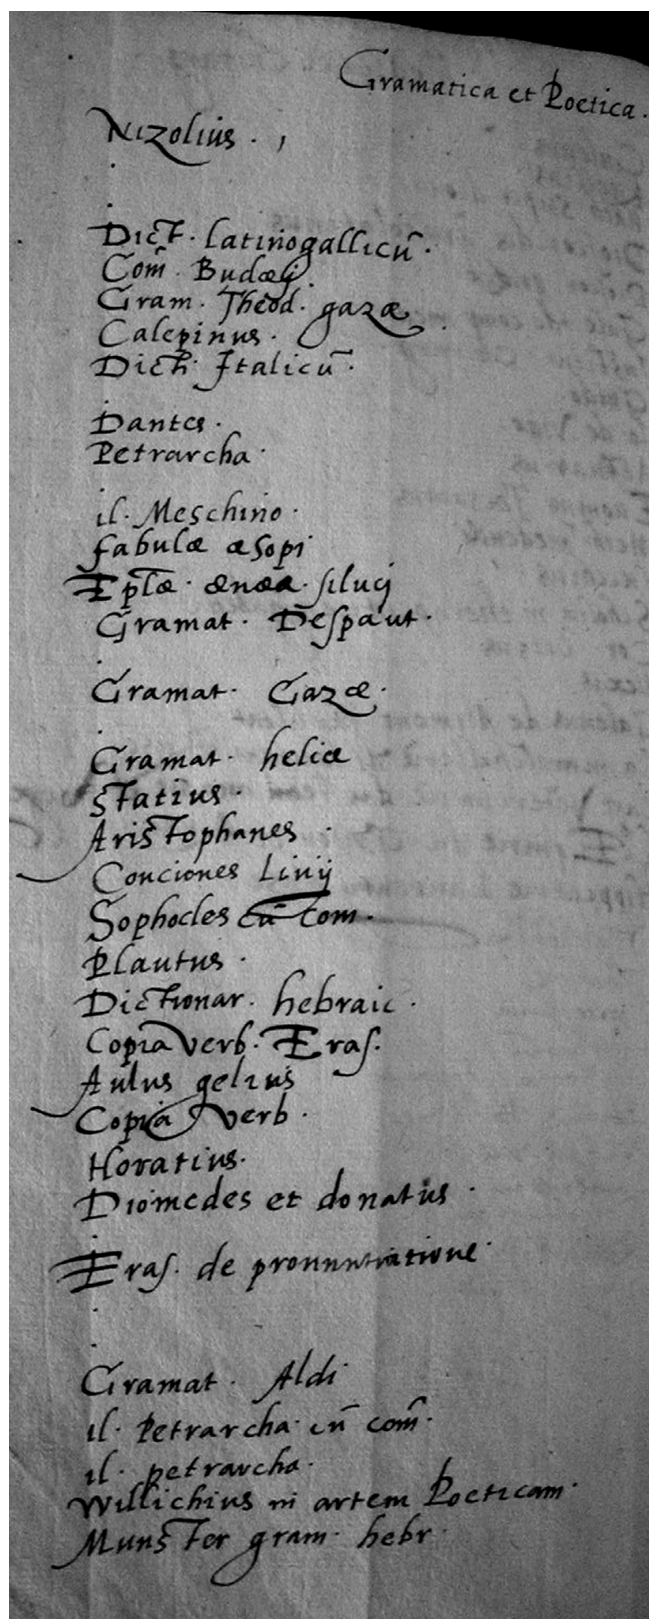 Gramatica et Poetica.
Nizolius.
Dict. latinogallicū.
Com̄. Budæij.
Gram. Theod. gazæ.
Calepinus.
Dict. Italicū.
Dantes.
Petrarcha.
il. Meschino.
fabulæ æsopi
Eplæ. æneæ. siluij
Gramat. Despaut.
Gramat. Gazæ.
Gramat. heliæ
Statius.
Aristophanes.
Conciones Livij
Sophocles cū com.
Plautus.
Dictionar. hebraic.
Copia verb. Eras.
Aulus gelius
Copia verb.
Horatius.
Diomedes et donatus.
Eras. de pronuntiatione.
Gramat. Aldi
il. Petrarcha. cū com̄.
il. petrarcha.
Willichius in artem Poeticam.
Munster gram. hebr.